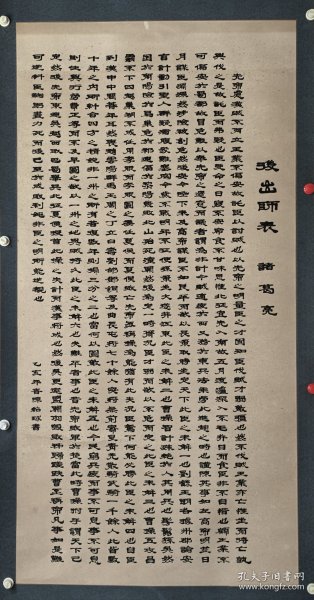 後出師表 諸葛亮
先帝慮漢賊不兩立王業不偏安故託臣以討賊也以先帝之明量臣之才固知臣伐賊才弱敵彊也然不伐賊王業亦亡惟坐而待亡孰
與伐之是故託臣而弗疑也臣受命之日寢不安席食不甘味思惟北征宜先入南故五月渡瀘深入不毛并日而食臣非不自惜也顧王業不
可偏安於蜀都故冒危難以奉先帝之遺意而議者謂為非計今賊適疲於西又務於東兵法乘勞此進趨之時也謹陳其事如左高帝明並日
月謀臣淵深然涉險被創危然後安今陛下未及高帝謀臣不如良平而欲以長策取勝坐定天下此臣之未解一也劉繇王朗各據州郡論安
言計動引聖人群疑滿腹眾難塞胸今歲不戰明年不征使孫策坐大遂并江東此臣之未解二也曹操智計殊絕於人其用兵也髣髴孫吳然
困於南陽險於烏巢危於祁連偪於黎陽幾敗北山殆死潼關然後偽定一時爾況臣才弱而欲以不危而定之此臣之未解三也曹操五攻昌
霸不下四越巢湖不成任用李服而李服圖之委夏侯而夏侯敗亡先帝每稱操為能猶有此失況臣駑下何能必勝此臣之未解四也自臣
到漢中中間朞年耳然喪趙雲陽群馬玉閻芝丁立白壽劉郃鄧銅等及曲長屯將七十餘人突將無前賨叟青羌散騎武騎一千餘人此皆數
十年之內所糾合四方之精銳非一州之所有若復數年則損三分之二也當何以圖敵此臣之未解五也今民窮兵疲而事不可息事不可息
則住與行勞費正等而不及早圖之欲以一州之地與賊持久此臣之未解六也夫難平者事也昔先帝敗軍於楚當此時曹操拊手謂天下已
定然後先帝東連吳越西取巴蜀舉兵北征夏侯授首此操之失計而漢事將成也然後吳更違盟關羽毀敗秭歸蹉跌曹丕稱帝凡事如是難
可逆料臣鞠躬盡力死而後已至於成敗利鈍非臣之明所能逆覩也
乙亥年